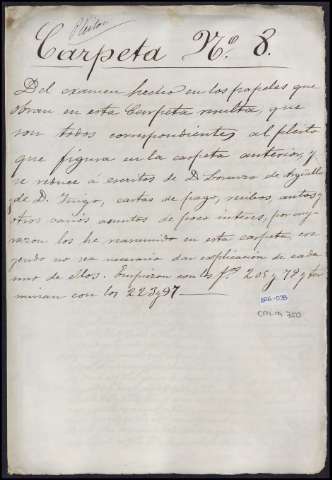 Pleitos
Carpeta N.º 8.
Del examen hecho en los papeles que
obran en esta Carpeta resulta, que
son todos correspondientes al pleito
que figura en la carpeta anterior, y
se reduce á escritos de D. Lorenzo de
y de D. Iñigo, cartas de pago, recibos, autos y
otros varios asuntos de poco interes, por cuya
razon los he reasumido en esta carpeta, cre
yendo no sea necesario dar esplicacion de cada
uno de ellos. Empiezan con los f.os 205 y 78 y ter
minan con los 223 y 97